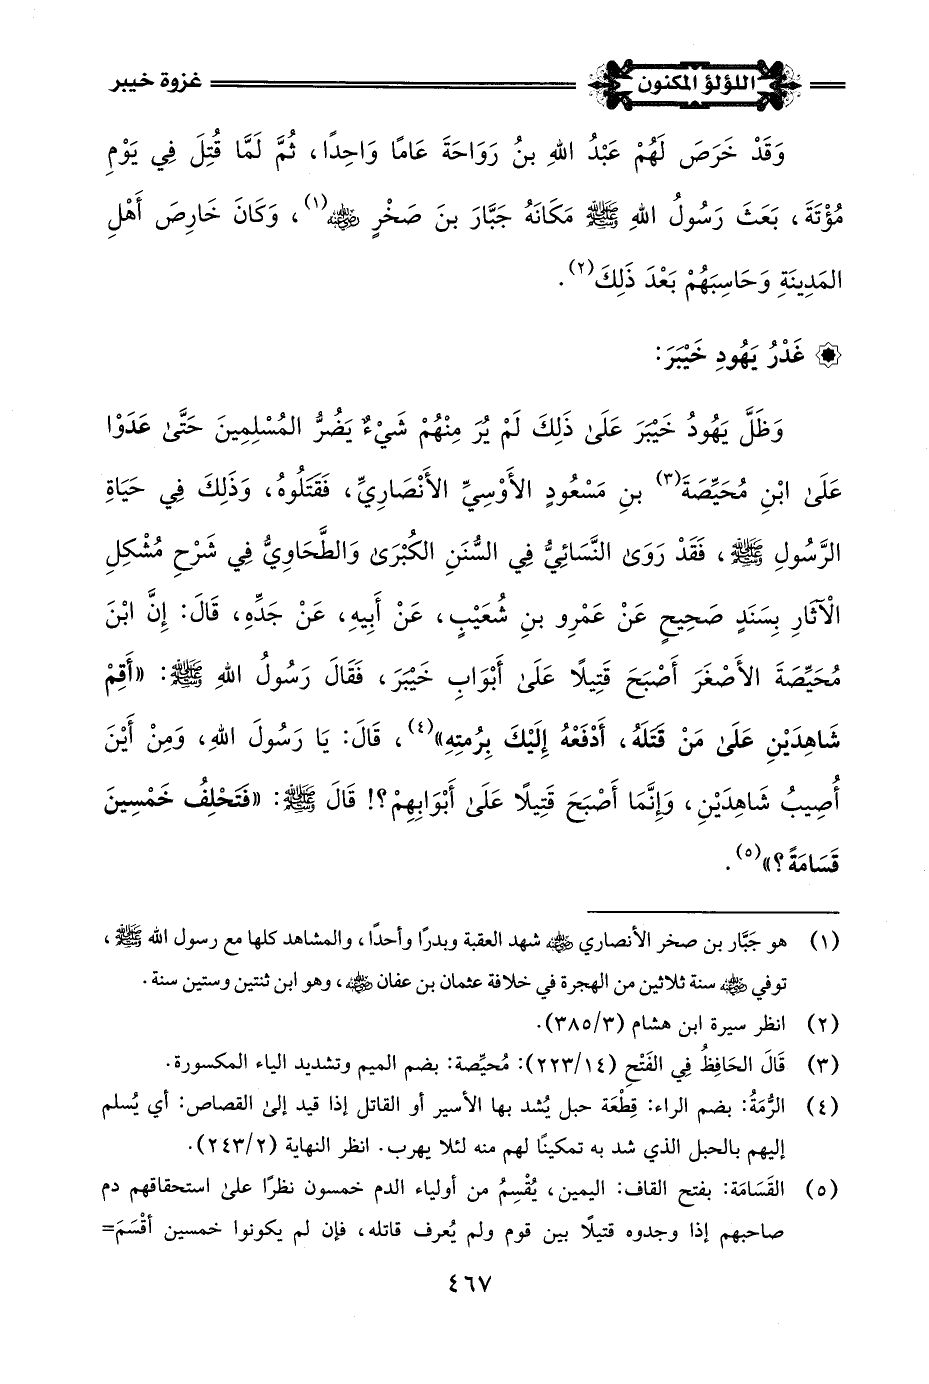 اللؤلؤ المكنون
غزوة خيبر
وَقَدْ خَرَصَ لَهُمْ عَبْدُ اللهِ بنُ رَوَاحَةَ عَامًا وَاحِدًا، ثُمَّ لَمَّا قُتِلَ فِي يَوْمِ
مُؤْتَةَ، بَعَثَ رَسُولُ اللهِ ﷺ مَكَانَهُ جَبَّارَ بنَ صَخْرٍ رضي الله عنه(١)، وَكَانَ خَارِصَ أَهْلِ
المَدِينَةِ وَحَاسِبَهُمْ بَعْدَ ذَلِكَ(٢).
غَدْرُ يَهُودِ خَيْبَرَ:
وَظَلَّ يَهُودُ خَيْبَرَ عَلَىٰ ذَلِكَ لَمْ يُرَ مِنْهُمْ شَيْءٌ يَضُرُّ المُسْلِمِينَ حَتَّىٰ عَدَوْا
عَلَىٰ ابْنِ مُحَيِّصَةَ(٣) بنِ مَسْعُودٍ الأَوْسِيِّ الأَنْصَارِيِّ، فَقَتَلُوهُ، وَذَلِكَ فِي حَيَاةِ
الرَّسُولِ ﷺ، فَقَدْ رَوَىٰ النَّسَائِيُّ فِي السُّنَنِ الكُبْرَىٰ وَالطَّحَاوِيُّ فِي شَرْحِ مُشْكِلِ
الْآثَارِ بِسَنَدٍ صَحِيحٍ عَنْ عَمْرِو بنِ شُعَيْبٍ، عَنْ أَبِيهِ، عَنْ جَدِّهِ، قَالَ: إِنَّ ابْنَ
مُحَيِّصَةَ الأَصْغَرَ أَصْبَحَ قَتِيلًا عَلَىٰ أَبْوَابِ خَيْبَرَ، فَقَالَ رَسُولُ اللهِ ﷺ: «أَقِمْ
شَاهِدَيْنِ عَلَىٰ مَنْ قَتَلَهُ، أَدْفَعْهُ إِلَيْكَ بِرُمتِهِ»(٤)، قَالَ: يَا رَسُولَ اللهِ، وَمِنْ أَيْنَ
أُصِيبُ شَاهِدَيْنِ، وَإِنَّمَا أَصْبَحَ قَتِيلًا عَلَىٰ أَبْوَابِهِمْ؟! قَالَ ﷺ: «فَتَحْلِفُ خَمْسِينَ
قَسَامَةً؟»(٥).
(١) هو جَبَّار بن صخر الأنصاري رضي الله عنه شهد العقبة وبدرًا وأحدًا، والمشاهد كلها مع رسول الله ﷺ،
توفي رضي الله عنه سنة ثلاثين من الهجرة في خلافة عثمان بن عفان رضي الله عنه، وهو ابن ثنتين وستين سنة.
(٢) انظر سيرة ابن هشام (٣/٣٨٥).
(٣) قَالَ الحَافِظُ فِي الفَتْحِ (١٤/٢٢٣): مُحيِّصة: بضم الميم وتشديد الياء المكسورة.
(٤) الرُّمَةُ: بضم الراء: قِطْعَة حبل يُشد بها الأسير أو القاتل إذا قيد إلىٰ القصاص: أي يُسلم
إليهم بالحبل الذي شد به تمكينًا لهم منه لئلا يهرب. انظر النهاية (٢/٢٤٣).
(٥) القَسَامَة: بفتح القاف: اليمين، يُقْسِمُ من أولياء الدم خمسون نظرًا علىٰ استحقاقهم دم
صاحبهم إذا وجدوه قتيلًا بين قوم ولم يُعرف قاتله، فإن لم يكونوا خمسين أَقْسَمَ=
٤٦٧